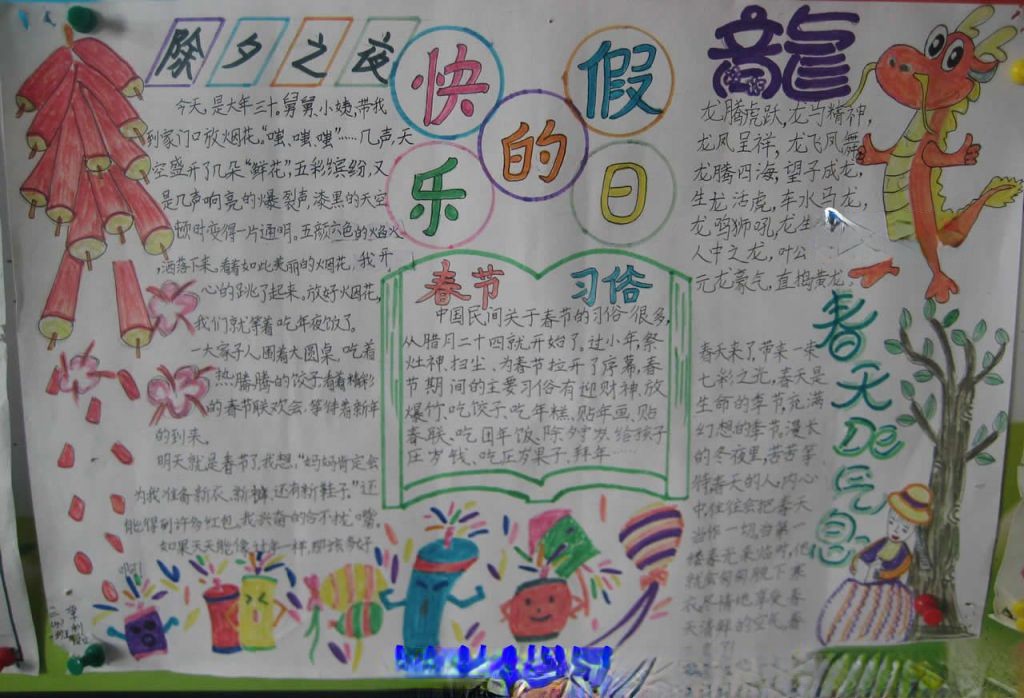 除夕之夜
今天,是大年三十。舅舅、小姨,带我
到家门口放烟花。“嗤、嗤、嗤”……几声,天
空盛开了几朵“鲜花”,五彩缤纷,又
是几声响亮的爆裂声,漆黑的天空
顿时变得一片通明。五颜六色的焰火
,洒落下来。看着如此美丽的烟花,我开
心的跳了起来。放好烟花,
我们就等着吃年夜饭了。
一大家子人围着大圆桌,吃着
热腾腾的饺子看着精彩
的春节联欢会,等待着新年
的到来。
明天就是春节了,我想,“妈妈肯定会
为我准备新衣、新裤、还有新鞋子。”还
能得到许多红包,我兴奋的合不拢嘴。
如果天天能像过年一样,那该多好
快乐的假日
春节习俗
中国民间关于春节的习俗很多,
从腊月二十四就开始了。过小年,祭
灶神,扫尘、为春节拉开了序幕,春
节期间的主要习俗有迎财神、放
爆竹、吃饺子、吃年糕、贴年画、贴
春联、吃团年饭、除夕守岁、给孩子
压岁钱、吃压岁果子、拜年……
龍
龙腾虎跃,龙马精神,
龙凤呈祥,龙飞凤舞
龙腾四海,望子成龙,
生龙活虎,车水马龙,
龙鸣狮吼,龙生
人中之龙,叶公
元龙豪气,直捣黄龙。
春天De气息
春天来了,带来一束
七彩之光,春天是
生命的季节,充满
幻想的季节。漫长
的冬夜里,苦苦等
待春天的人,内心
中往往会把春天
当作一切,当第一
缕春光来临时,他
就会匆匆脱下寒
衣尽情地享受春
天清鲜的空气,春